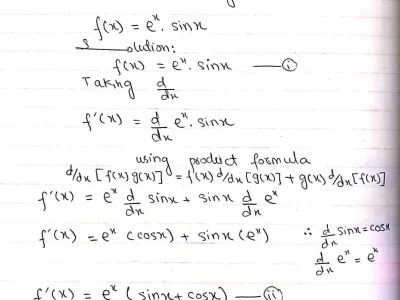 f(x) = eˣ. sinx
Solution:
f(x) = eˣ. sinx —— (i)
Taking d/dx
f'(x) = d/dx eˣ. sinx
using product formula
d/dx [f(x) g(x)] = f'(x) d/dx [g(x)] + g(x) d/dx [f(x)]
f'(x) = eˣ d/dx sinx + sinx d/dx eˣ
f'(x) = eˣ (cosx) + sinx (eˣ) ∴ d/dx sinx = cosx
d/dx eˣ = eˣ
f'(x) = eˣ (sinx + cosx) —— (ii)